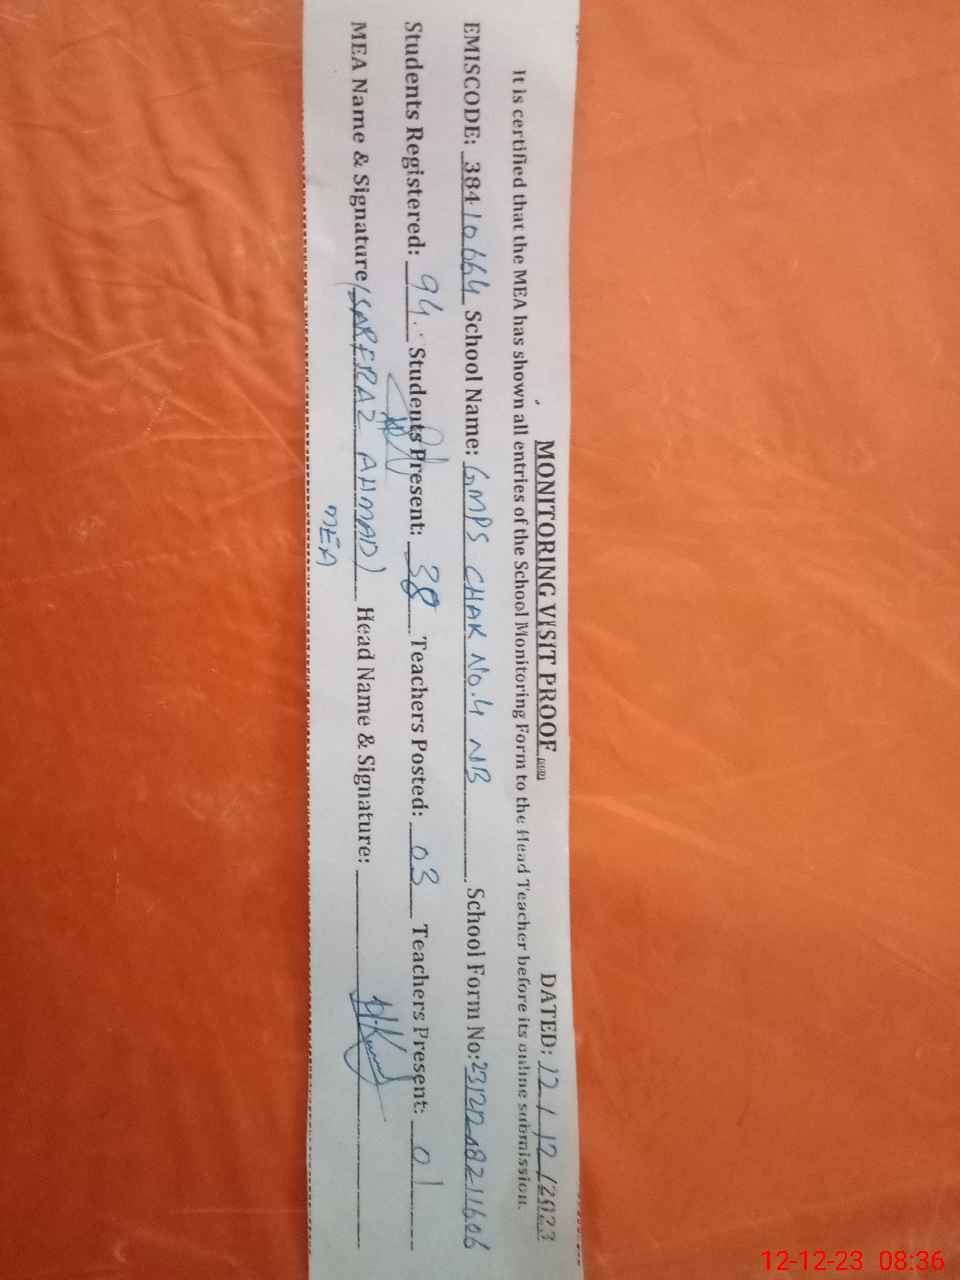 MONITORING VISIT PROOF DATED: 12/12/2023
It is certified that the MEA has shown all entries of the School Monitoring Form to the Head Teacher before its online submission.
EMISCODE: 38410664 School Name: GMPS CHAK No.4 NB School Form No:
Students Registered: 94 Students Present: 38 Teachers Posted: 03 Teachers Present: 01
MEA Name & Signature (SARFRAZ AHMAD) Head Name & Signature:
MEA
12-12-23 08:36